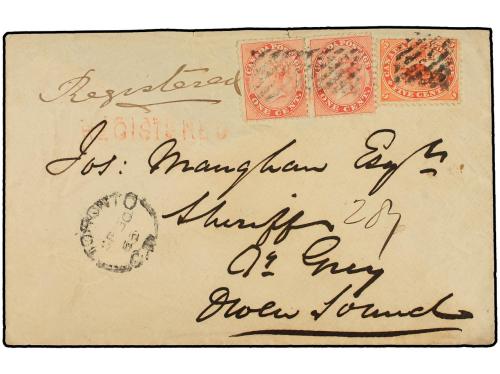 CANADA POSTAGE CANADA POSTAGE CANADA
ONE CENT ONE CENT FIVE CENTS
Registered
REGISTERED
Jos: Maughan Esqre
TORONTO
Sheriff 287
Co Grey
Owen Sound